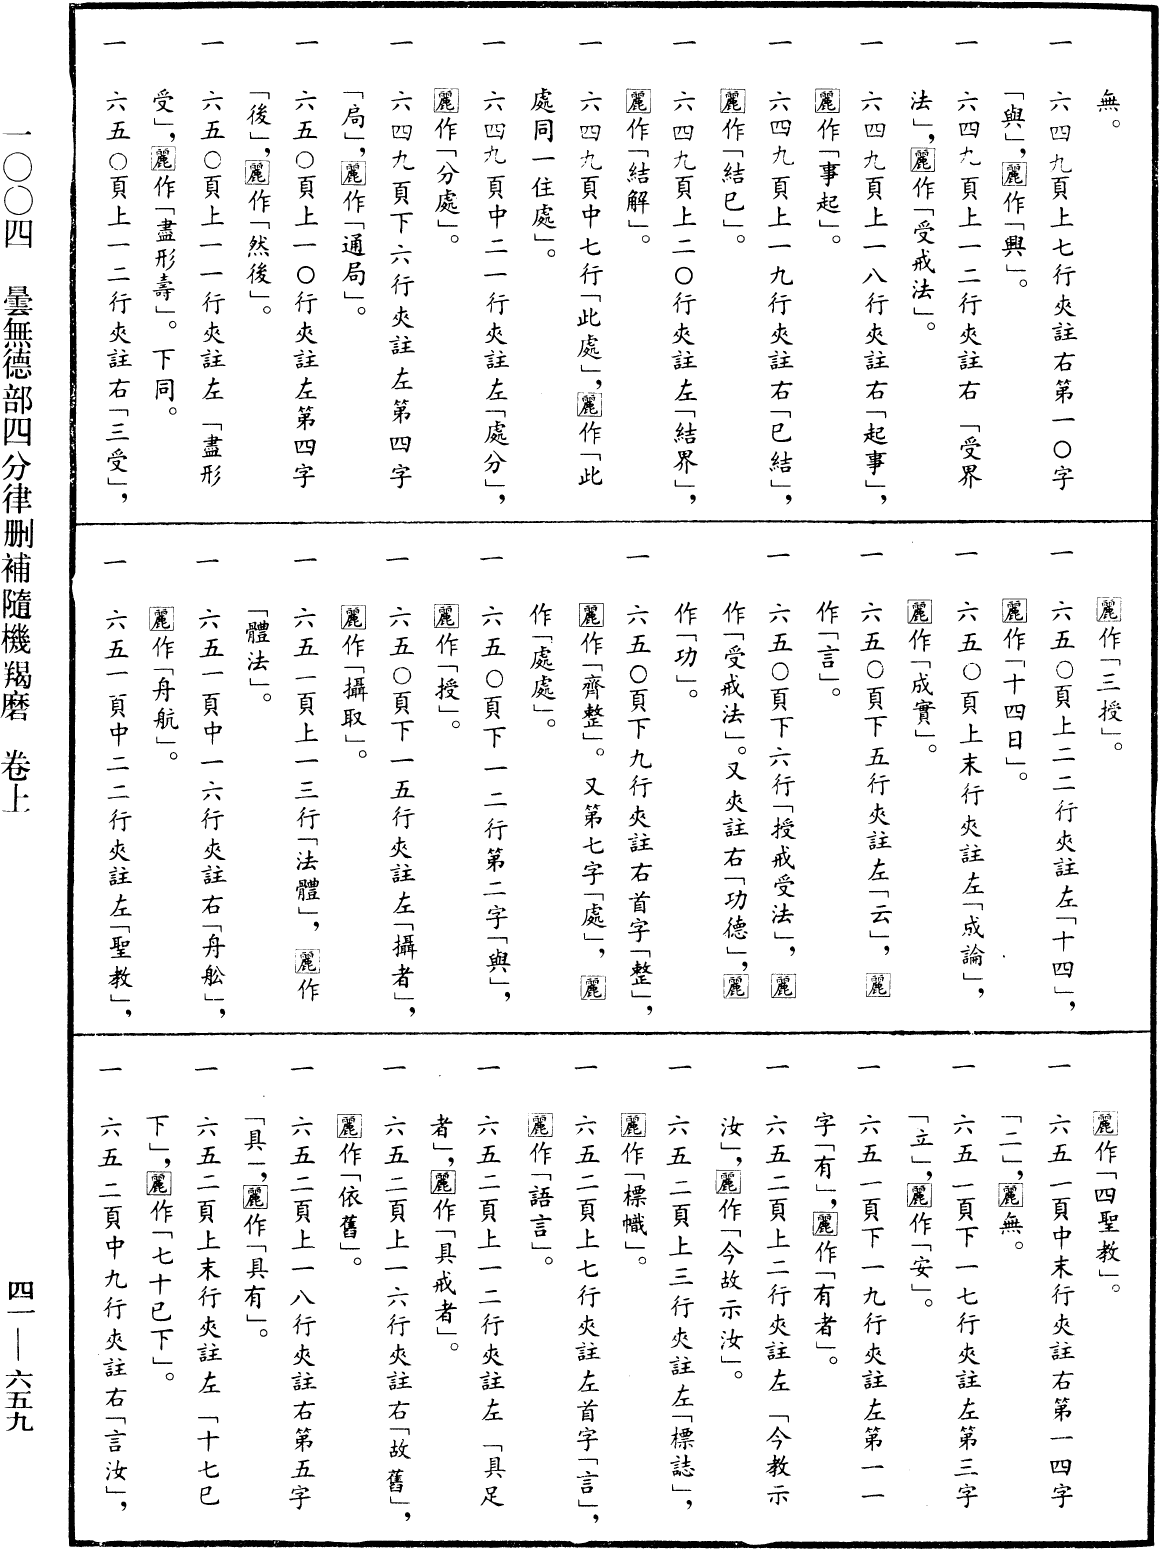 無。
一　六四九頁上七行夾註右第一〇字
「與」，麗作「興」。
一　六四九頁上一二行夾註右「受界
法」，麗作「受戒法」。
一　六四九頁上一八行夾註右「起事」，
麗作「事起」。
一　六四九頁上一九行夾註右「已結」，
麗作「結已」。
一　六四九頁上二〇行夾註左「結界」，
麗作「結解」。
一　六四九頁中七行「此處」，麗作「此
處同一住處」。
一　六四九頁中二一行夾註左「處分」，
麗作「分處」。
一　六四九頁下六行夾註左第四字
「局」，麗作「通局」。
一　六五〇頁上一〇行夾註左第四字
「後」，麗作「然後」。
一　六五〇頁上一一行夾註左「盡形
受」，麗作「盡形壽」。下同。
一　六五〇頁上一二行夾註右「三受」，
麗作「三授」。
一　六五〇頁上二二行夾註左「十四」，
麗作「十四日」。
一　六五〇頁上末行夾註左「成論」，
麗作「成實」。
一　六五〇頁下五行夾註左「云」，麗
作「言」。
一　六五〇頁下六行「授戒受法」，麗
作「受戒法」。又夾註右「功德」，麗
作「功」。
一　六五〇頁下九行夾註右首字「整」，
麗作「齊整」。又第七字「處」，麗
作「處處」。
一　六五〇頁下一二行第二字「與」，
麗作「授」。
一　六五〇頁下一五行夾註左「攝者」，
麗作「攝取」。
一　六五一頁上一三行「法體」，麗作
「體法」。
一　六五一頁中一六行夾註右「舟舩」，
麗作「舟航」。
一　六五一頁中二二行夾註左「聖教」，
麗作「四聖教」。
一　六五一頁中末行夾註右第一四字
「二」，麗無。
一　六五一頁下一七行夾註左第三字
「立」，麗作「安」。
一　六五一頁下一九行夾註左第一一
字「有」，麗作「有者」。
一　六五二頁上二行夾註左「今教示
汝」，麗作「今故示汝」。
一　六五二頁上三行夾註左「標誌」，
麗作「標幟」。
一　六五二頁上七行夾註左首字「言」，
麗作「語言」。
一　六五二頁上一二行夾註左「具足
者」，麗作「具戒者」。
一　六五二頁上一六行夾註右「故舊」，
麗作「依舊」。
一　六五二頁上一八行夾註右第五字
「具」，麗作「具有」。
一　六五二頁上末行夾註左「十七已
下」，麗作「七十已下」。
一　六五二頁中九行夾註右「言汝」，
一〇〇四　曇無德部四分律刪補隨機羯磨　卷上
四一—六五九